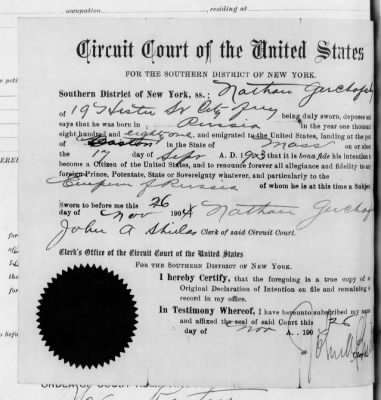 occupation
residing at
Circuit Court of the United States
FOR THE SOUTHERN DISTRICT OF NEW YORK.
Southern District of New York, ss.: Nathan
of 197 Hester St City of NY being duly sworn, deposes
says that he was born in Russia in the year one thousand
eight hundred and eighty one, and emigrated to the United States, landing at the
of Boston in the State of Mass on or
the 17 day of Sept A. D. 1903 that it is bona fide his intention
become a Citizen of the United States, and to renounce forever all allegiance and fidelity to
foreign Prince, Potentate, State or Sovereignty whatever, and particularly to the
Empire of Russia of whom he is at this time a Subject
Sworn to before me this 26
day of Nov 1904 Nathan
John A Shields Clerk of said Circuit Court.
Clerk's Office of the Circuit Court of the United States
FOR THE SOUTHERN DISTRICT OF NEW YORK.
I hereby Certify, that the foregoing is a true copy of
Original Declaration of Intention on file and remaining
record in my office.
In Testimony Whereof, I have hereunto subscribed my
and affixed the seal of said Court this 26
day of Nov A. 190
John A